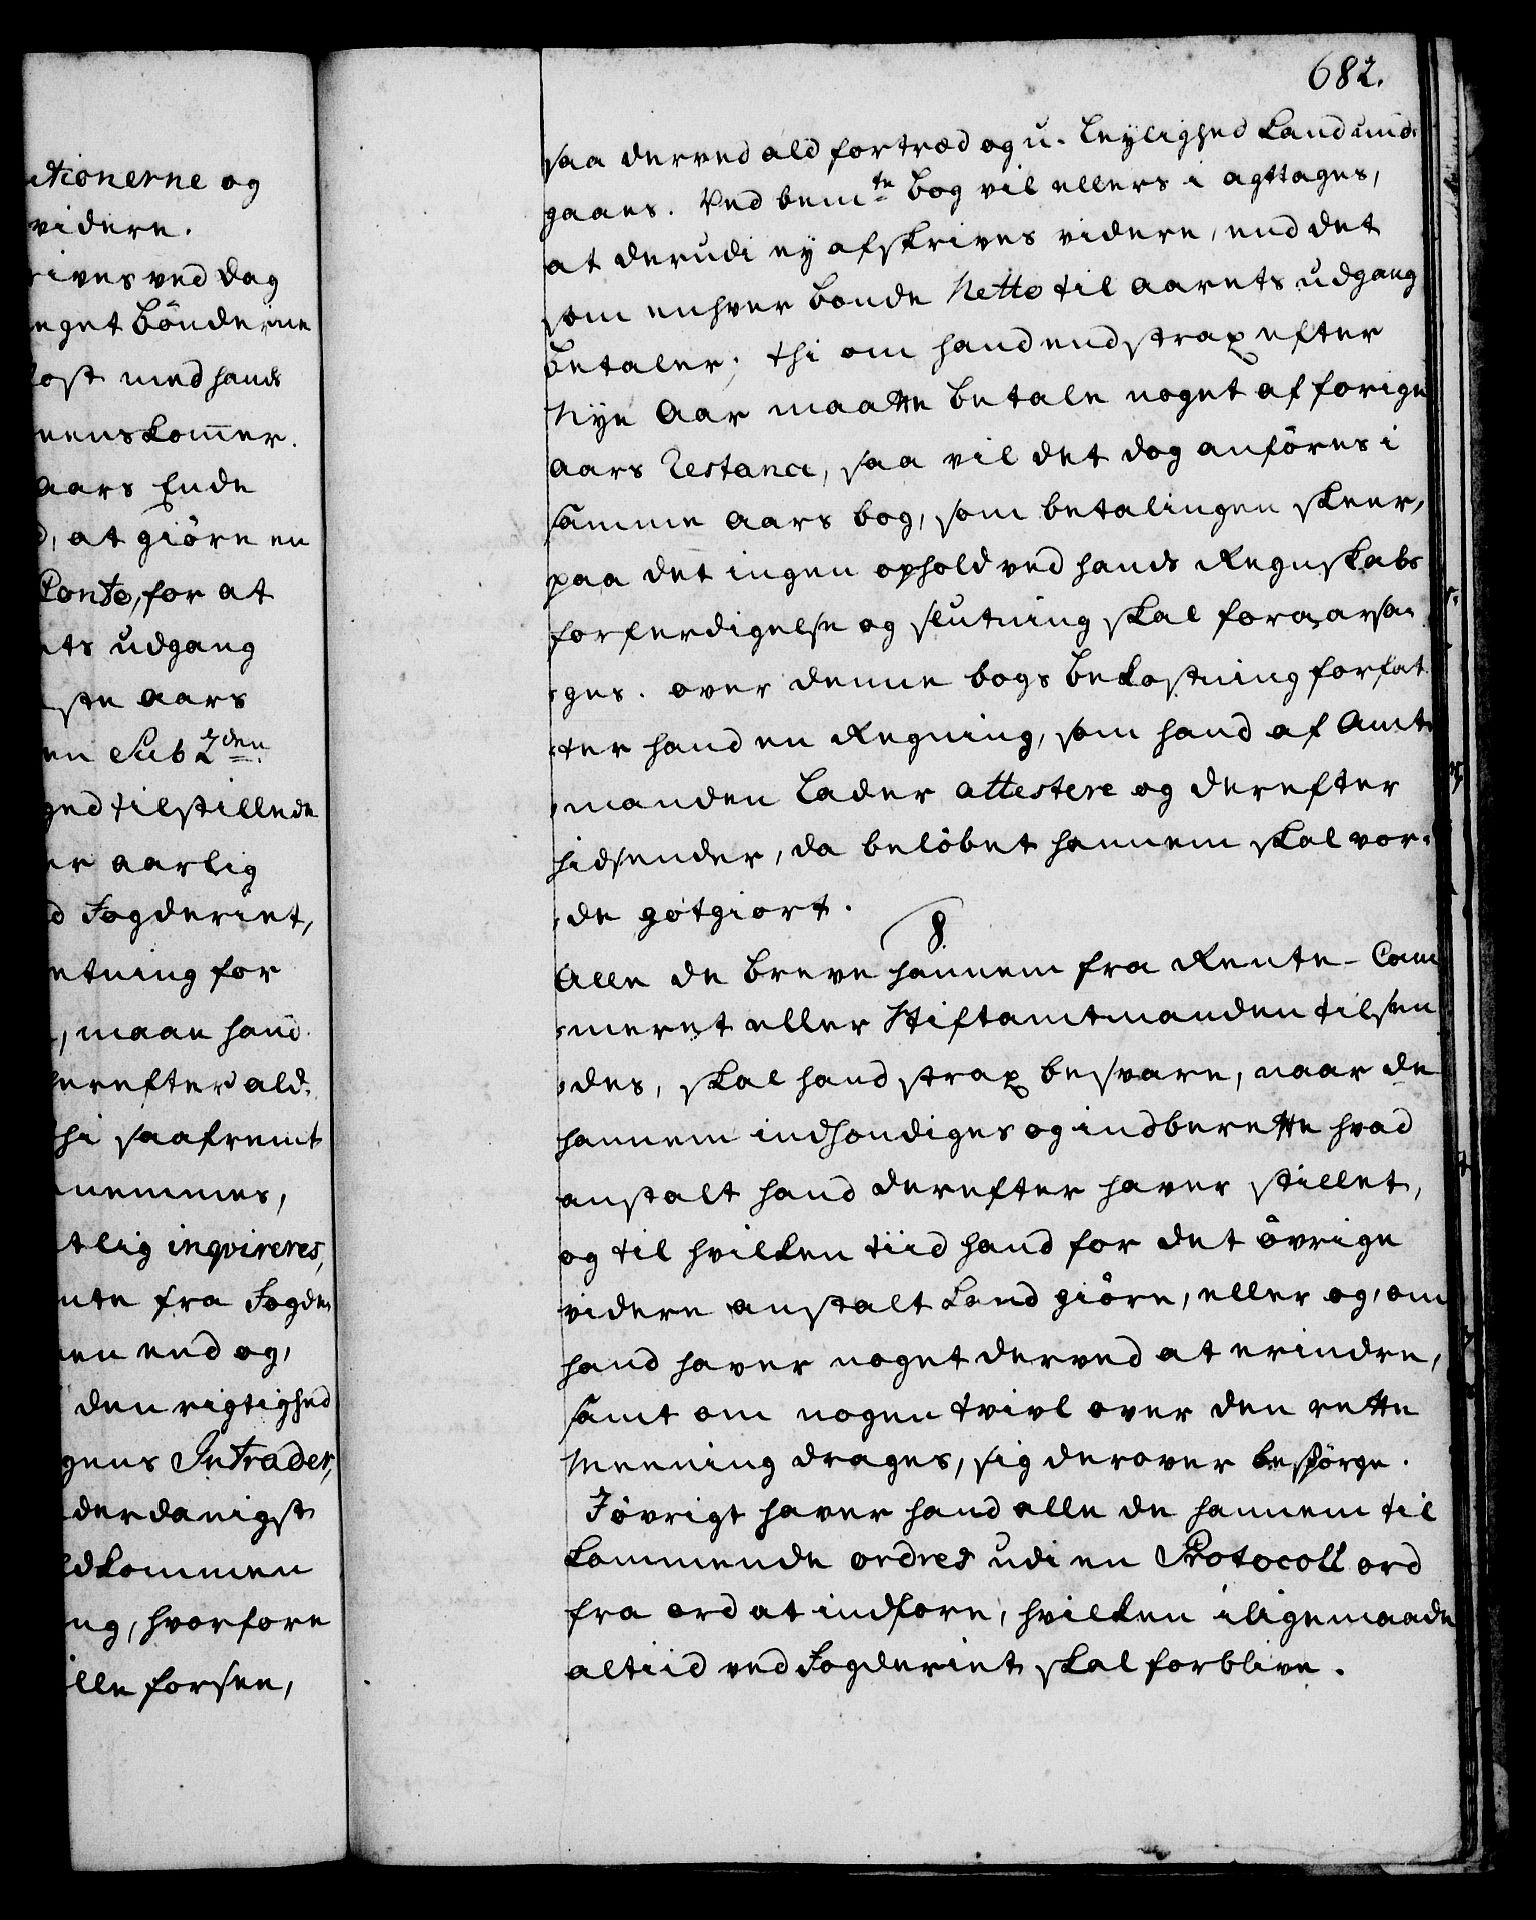 ctionerne og
videre.
rives ved dag
eget Bønderne
kost med hands
eenskom̄er.
Aars Ende
d, at giøre en
Conto, for at
ets udgang
ste aars
en Sub 2den
ged tilstillede
er aarlig
d Fogderiet,
etning for
, maae hand
derefter ald-
thi saafremt
nemmes,
tlig inqvireres,
nte fra Fogde
en end og,
den rigtighed
gens Intrader,
derdanigst
ldkommen
ng, hvorfore
ille forsee,
682.
saa derved ald fortræd og u-leylighed kand und-
gaaes. Ved bemte bog vil ellers i agttages,
at derudi ey afskrives videre, end det
som enhver bonde Netto til Aarets udgang
betaler; thi om hand end strax efter
Nye Aar maatte betale noget af forige
Aars Restance, saa vil det dog anføres i
samme Aars bog, som betalingen skeer,
paa det ingen ophold ved hands Regnskabs
forferdigelse og slutning skal foraarsa-
ges. over denne bogs bekostning forfat-
ter hand en Regning, som hand af Amt-
manden lader attestere og derefter
hidsender, da beløbet hannem skal vor-
de gotgiort.
8.
Alle de breve hannem fra Rente-Cam
meret eller Stiftamtmanden tilsen
des, skal hand strax besvare, naar de
hannem indhændiges og indberette hvad
anstalt hand derefter haver stillet,
og til hvilken tiid hand for det øvrige
videre anstalt kand giøre, eller og, om
hand haver noget derved at erindre,
samt om nogen tvivl over den rette
Meening drages, sig derover bespørge.
Iøvrigt haver hand alle de hannem til
kommende ordres udi en Protocoll ord
fra ord at indføre, hvilken iligemaade
altiid ved Fogderiet skal forblive.